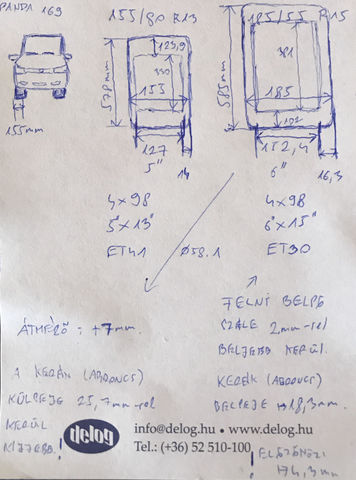 PANDA 169
155/80 R13
185/55 R15
155mm
578mm
123,9
330
155
127
5"
14
585mm
381
185
102
152,4
6"
16,3
4x98
5"x13"
ET41
Ø58.1
4x98
6"x15"
ET30
ÁTMÉRŐ: +7mm.
FELNI BELPE
SZÉLE 2mm-rel
BELJEBB KERÜL.
A KERÉK (ABRONCS)
KÜLPEJE 25,7mm-rel
KERÜL
KIJJEBB!
KERÉK (ABRONCS)
BELPEJE →18,3mm.
delog
info@delog.hu • www.delog.hu
Tel.: (+36) 52 510-100
! ELŐZŐHÖZ